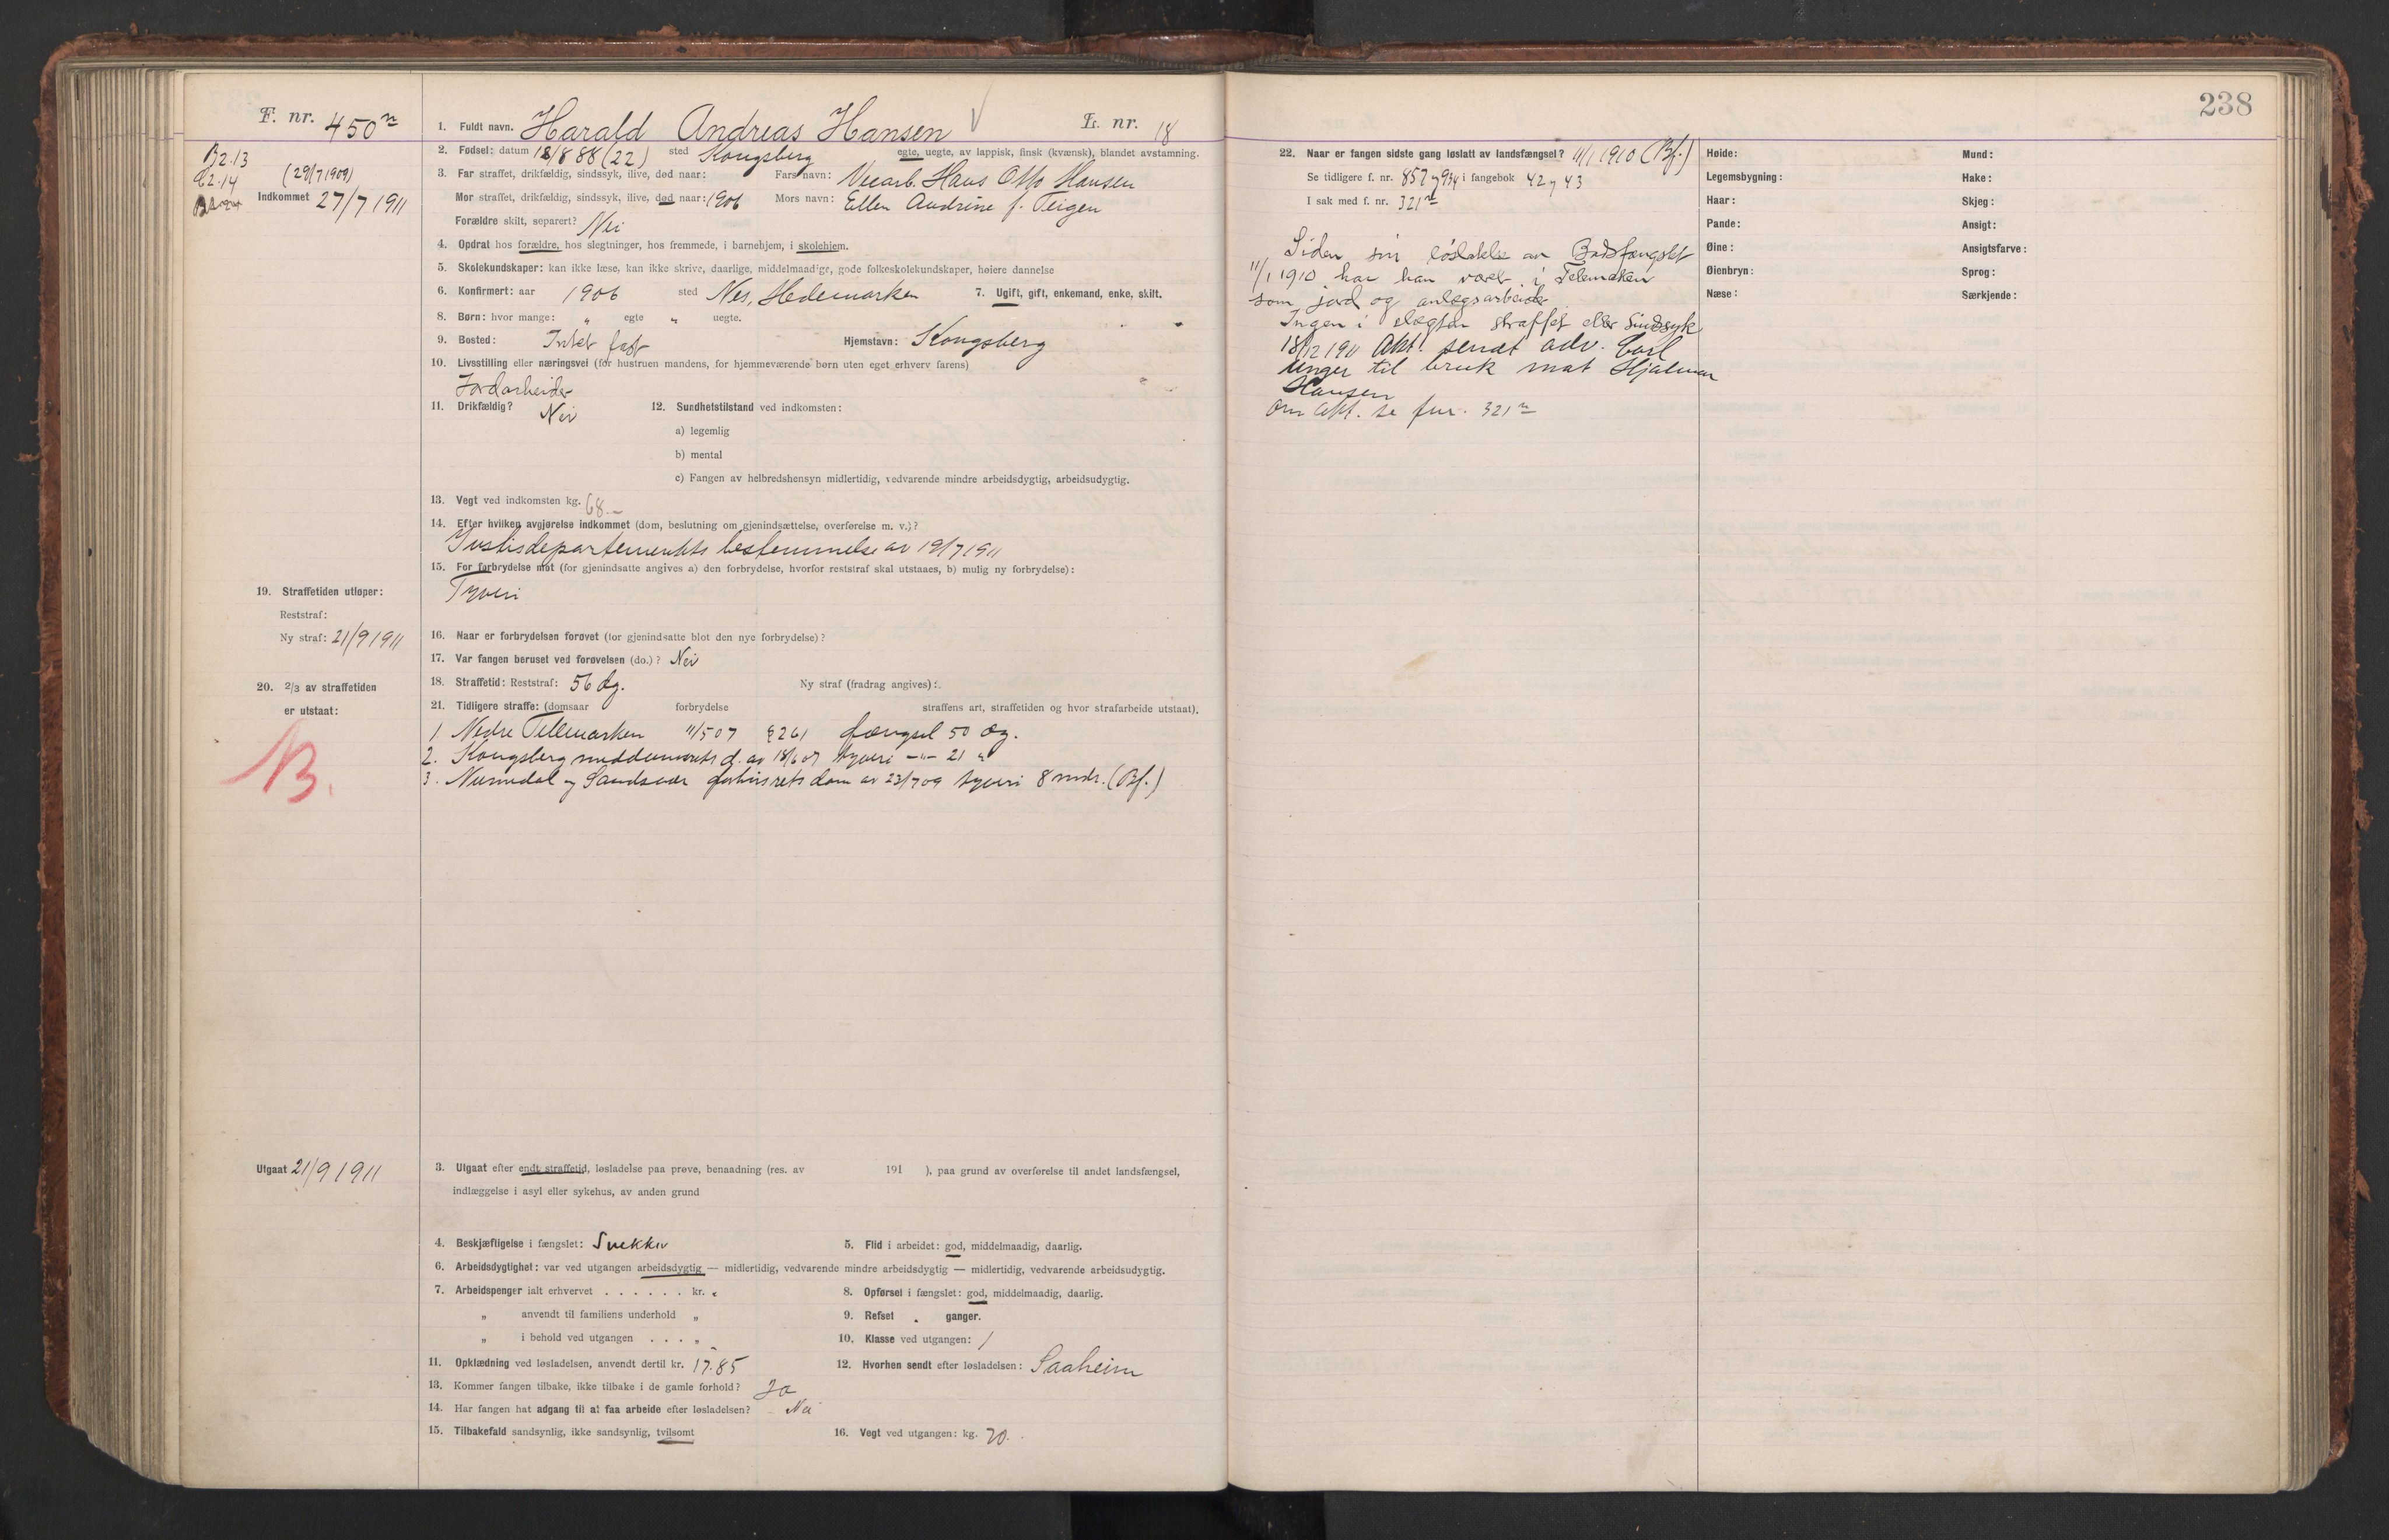 F. nr. 450ⁿ
B2.13
B2.14
(29/7 1909)
Indkommet 27/7 1911
1. Fuldt navn. Harald Andreas Hansen
L. nr. 18
2. Fødsel: datum 18/8 88 (22) sted Kongsberg egte, uegte, av lappisk, finsk (kvænsk), blandet avstamning.
3. Far straffet, drikfældig, sindssyk, ilive, død naar: Fars navn: Veiarb. Hans Otto Hansen
Mor straffet, drikfældig, sindssyk, ilive, død naar: 1906 Mors navn: Ellen Andrine f. Teigen
Forældre skilt, separert? Nei
4. Opdrat hos forældre, hos slegtninger, hos fremmede, i barnehjem, i skolehjem.
5. Skolekundskaper: kan ikke læse, kan ikke skrive, daarlige, middelmaadige, gode folkeskolekundskaper, høiere dannelse
6. Konfirmert: aar 1906 sted Nes, Hedemarken 7. Ugift, gift, enkemand, enke, skilt.
8. Børn: hvor mange: " egte " uegte.
9. Bosted: Intet fast Hjemstavn: Kongsberg
10. Livsstilling eller næringsvei (for hustruen mandens, for hjemmeværende børn uten eget erhverv farens)
Jordarbeider
11. Drikfældig? Nei 12. Sundhetstilstand ved indkomsten:
a) legemlig
b) mental
c) Fangen av helbredshensyn midlertidig, vedvarende mindre arbeidsdygtig, arbeidsudygtig.
13. Vegt ved indkomsten kg. 68.–
14. Efter hvilken avgjørelse indkommet (dom, beslutning om gjenindsættelse, overførelse m. v.)?
Justisdepartementets bestemmelse av 19/7 1911
15. For forbrydelse mot (for gjenindsatte angives a) den forbrydelse, hvorfor reststraf skal utstaaes, b) mulig ny forbrydelse):
Tyveri
19. Straffetiden utløper:
Reststraf:
Ny straf: 21/9 1911
16. Naar er forbrydelsen forøvet (for gjenindsatte blot den nye forbrydelse)?
17. Var fangen beruset ved forøvelsen (do.)? Nei
18. Straffetid: Reststraf: 56 dg. Ny straf (fradrag angives):
20. 2/3 av straffetiden
er utstaat:
21. Tidligere straffe: (domsaar forbrydelse straffens art, straffetiden og hvor strafarbeide utstaat).
1. Nedre Tellemarken 11/5 07 § 261 fængsel 50 dg.
2. Kongsberg meddomsrets d. av 18/6 07 tyveri –"– 21 "
3. Numedal og Sandsvær forhørsrets dom av 23/7 09 tyveri 8 mdr. (Bf.)
B.
Utgaat 21/9 1911
3. Utgaat efter endt straffetid, løsladelse paa prøve, benaadning (res. av 191 ), paa grund av overførelse til andet landsfængsel,
indlæggelse i asyl eller sykehus, av anden grund
4. Beskjæftigelse i fængslet: Snekker 5. Flid i arbeidet: god, middelmaadig, daarlig.
6. Arbeidsdygtighet: var ved utgangen arbeidsdygtig — midlertidig, vedvarende mindre arbeidsdygtig — midlertidig, vedvarende arbeidsudygtig.
7. Arbeidspenger ialt erhvervet . . . . . . kr. " 8. Opførsel i fængslet: god, middelmaadig, daarlig.
" anvendt til familiens underhold " 9. Refset " ganger.
" i behold ved utgangen . . . " 10. Klasse ved utgangen: 1
11. Opklædning ved løsladelsen, anvendt dertil kr. 17.85 12. Hvorhen sendt efter løsladelsen: Saaheim
13. Kommer fangen tilbake, ikke tilbake i de gamle forhold? Ja
14. Har fangen hat adgang til at faa arbeide efter løsladelsen? Nei
15. Tilbakefald sandsynlig, ikke sandsynlig, tvilsomt 16. Vegt ved utgangen: kg. 70.
238
22. Naar er fangen sidste gang løslatt av landsfængsel? 11/1 1910 (Bf.)
Se tidligere f. nr. 857 og 934 i fangebok 42 og 43
I sak med f. nr. 321ⁿ
Siden sin løslatelse av Bodsfængslet
11/1 1910 har han været i Telemarken
som jord og anlægsarbeider
Ingen i slægten straffet eller sindssyk
18/12 1911 Akt. sendt adv. Carl
Unger til bruk mot Hjalmar
Hansen
Om akt. se fnr. 321ⁿ
Høide:
Legemsbygning:
Haar:
Pande:
Øine:
Øienbryn:
Næse:
Mund:
Hake:
Skjeg:
Ansigt:
Ansigtsfarve:
Sprog:
Særkjende: